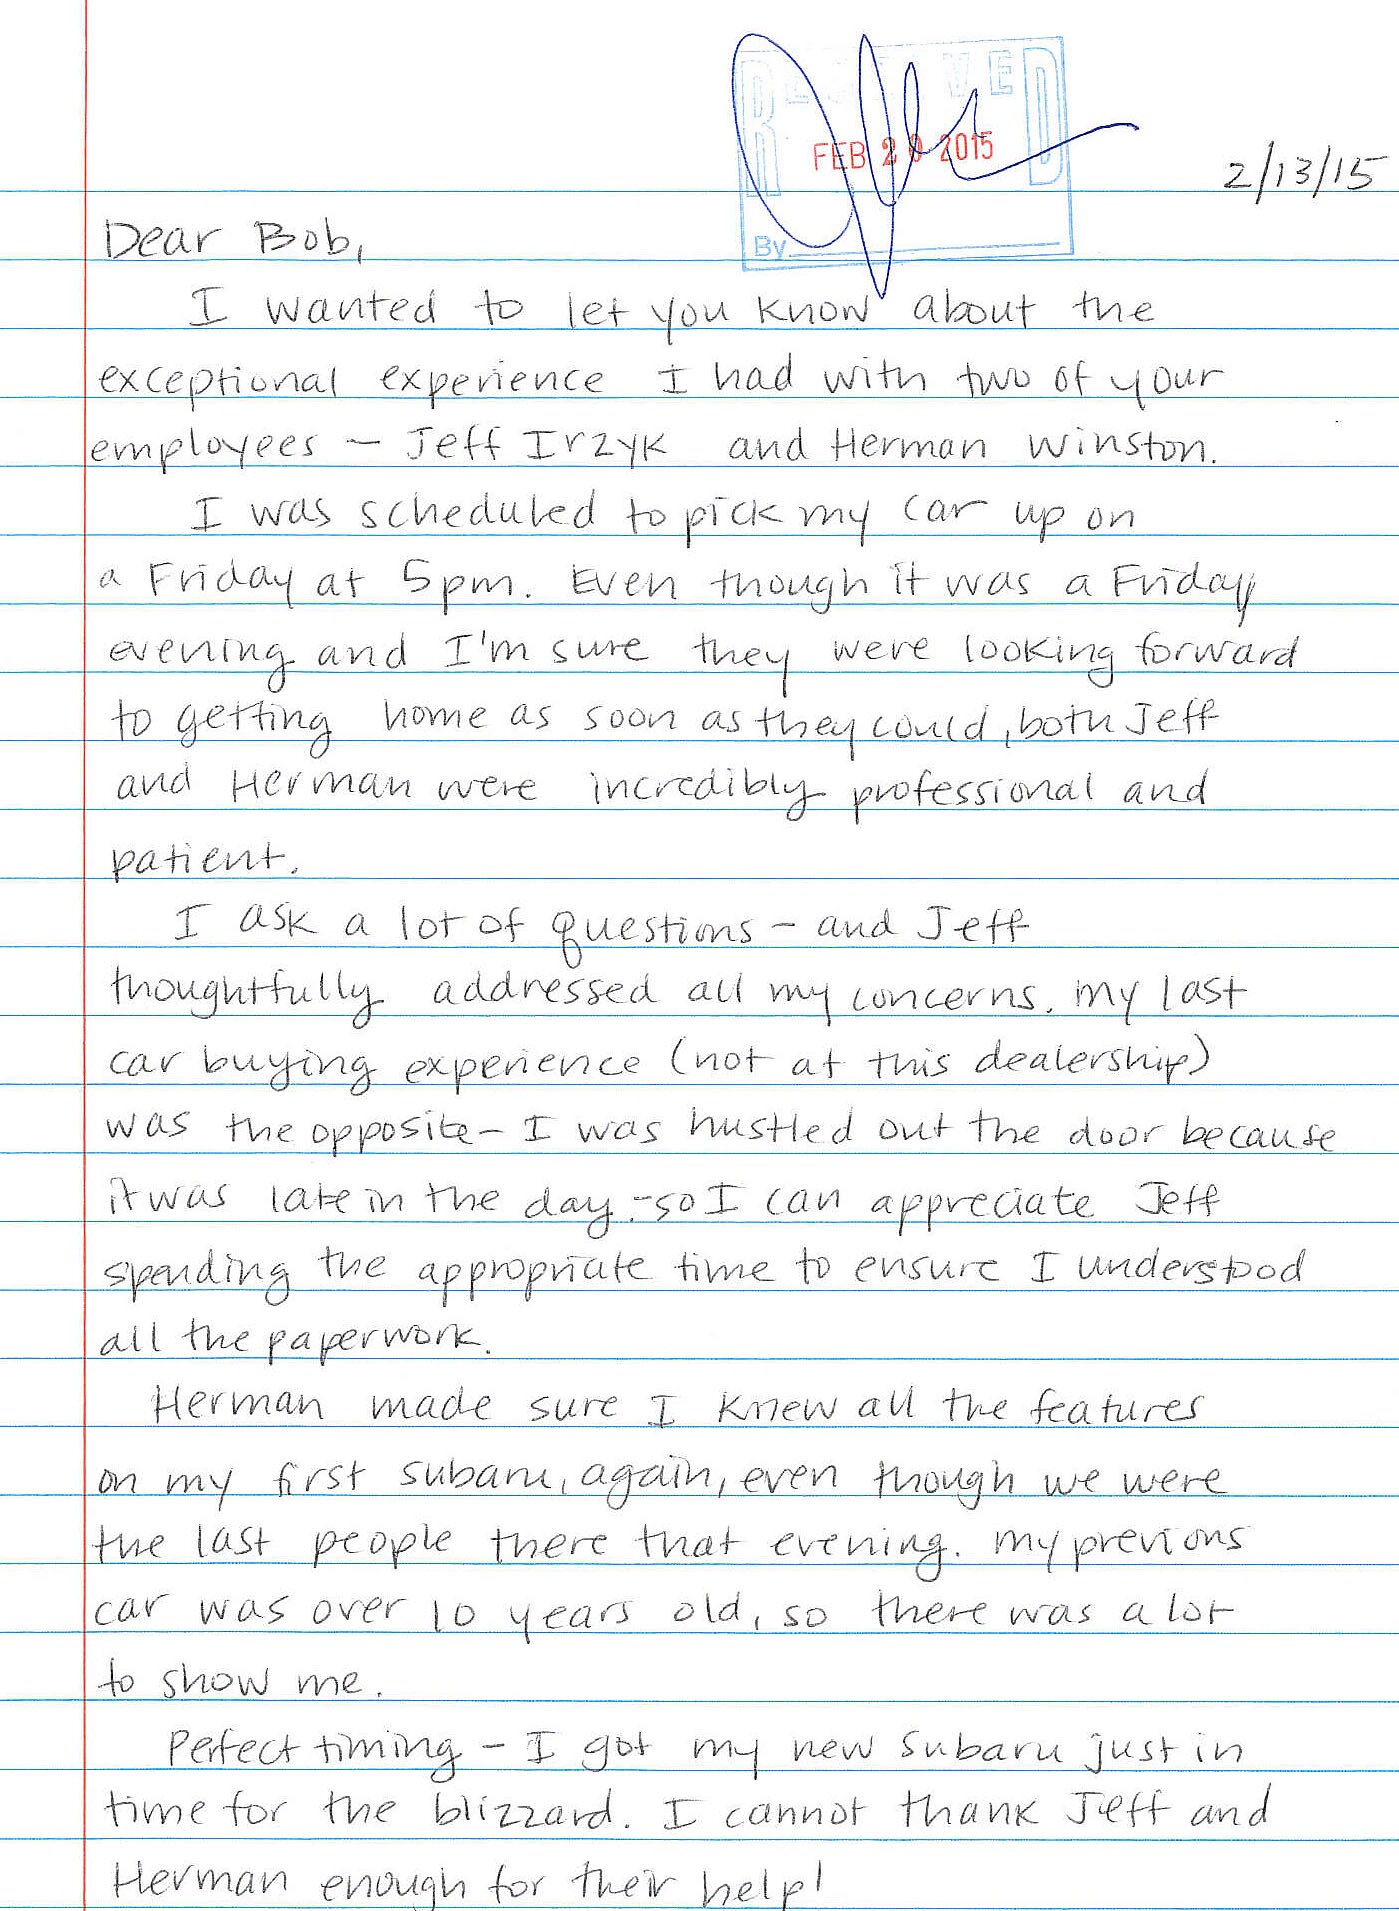 RECEIVED
FEB 20 2015
By
2/13/15
Dear Bob,
I wanted to let you know about the
exceptional experience I had with two of your
employees – Jeff Irzyk and Herman Winston.
I was scheduled to pick my car up on
a Friday at 5pm. Even though it was a Friday
evening and I'm sure they were looking forward
to getting home as soon as they could, both Jeff
and Herman were incredibly professional and
patient.
I ask a lot of questions – and Jeff
thoughtfully addressed all my concerns. My last
car buying experience (not at this dealership)
was the opposite – I was hustled out the door because
it was late in the day – so I can appreciate Jeff
spending the appropriate time to ensure I understood
all the paperwork.
Herman made sure I knew all the features
on my first Subaru, again, even though we were
the last people there that evening. My previous
car was over 10 years old, so there was a lot
to show me.
Perfect timing – I got my new Subaru just in
time for the blizzard. I cannot thank Jeff and
Herman enough for their help!